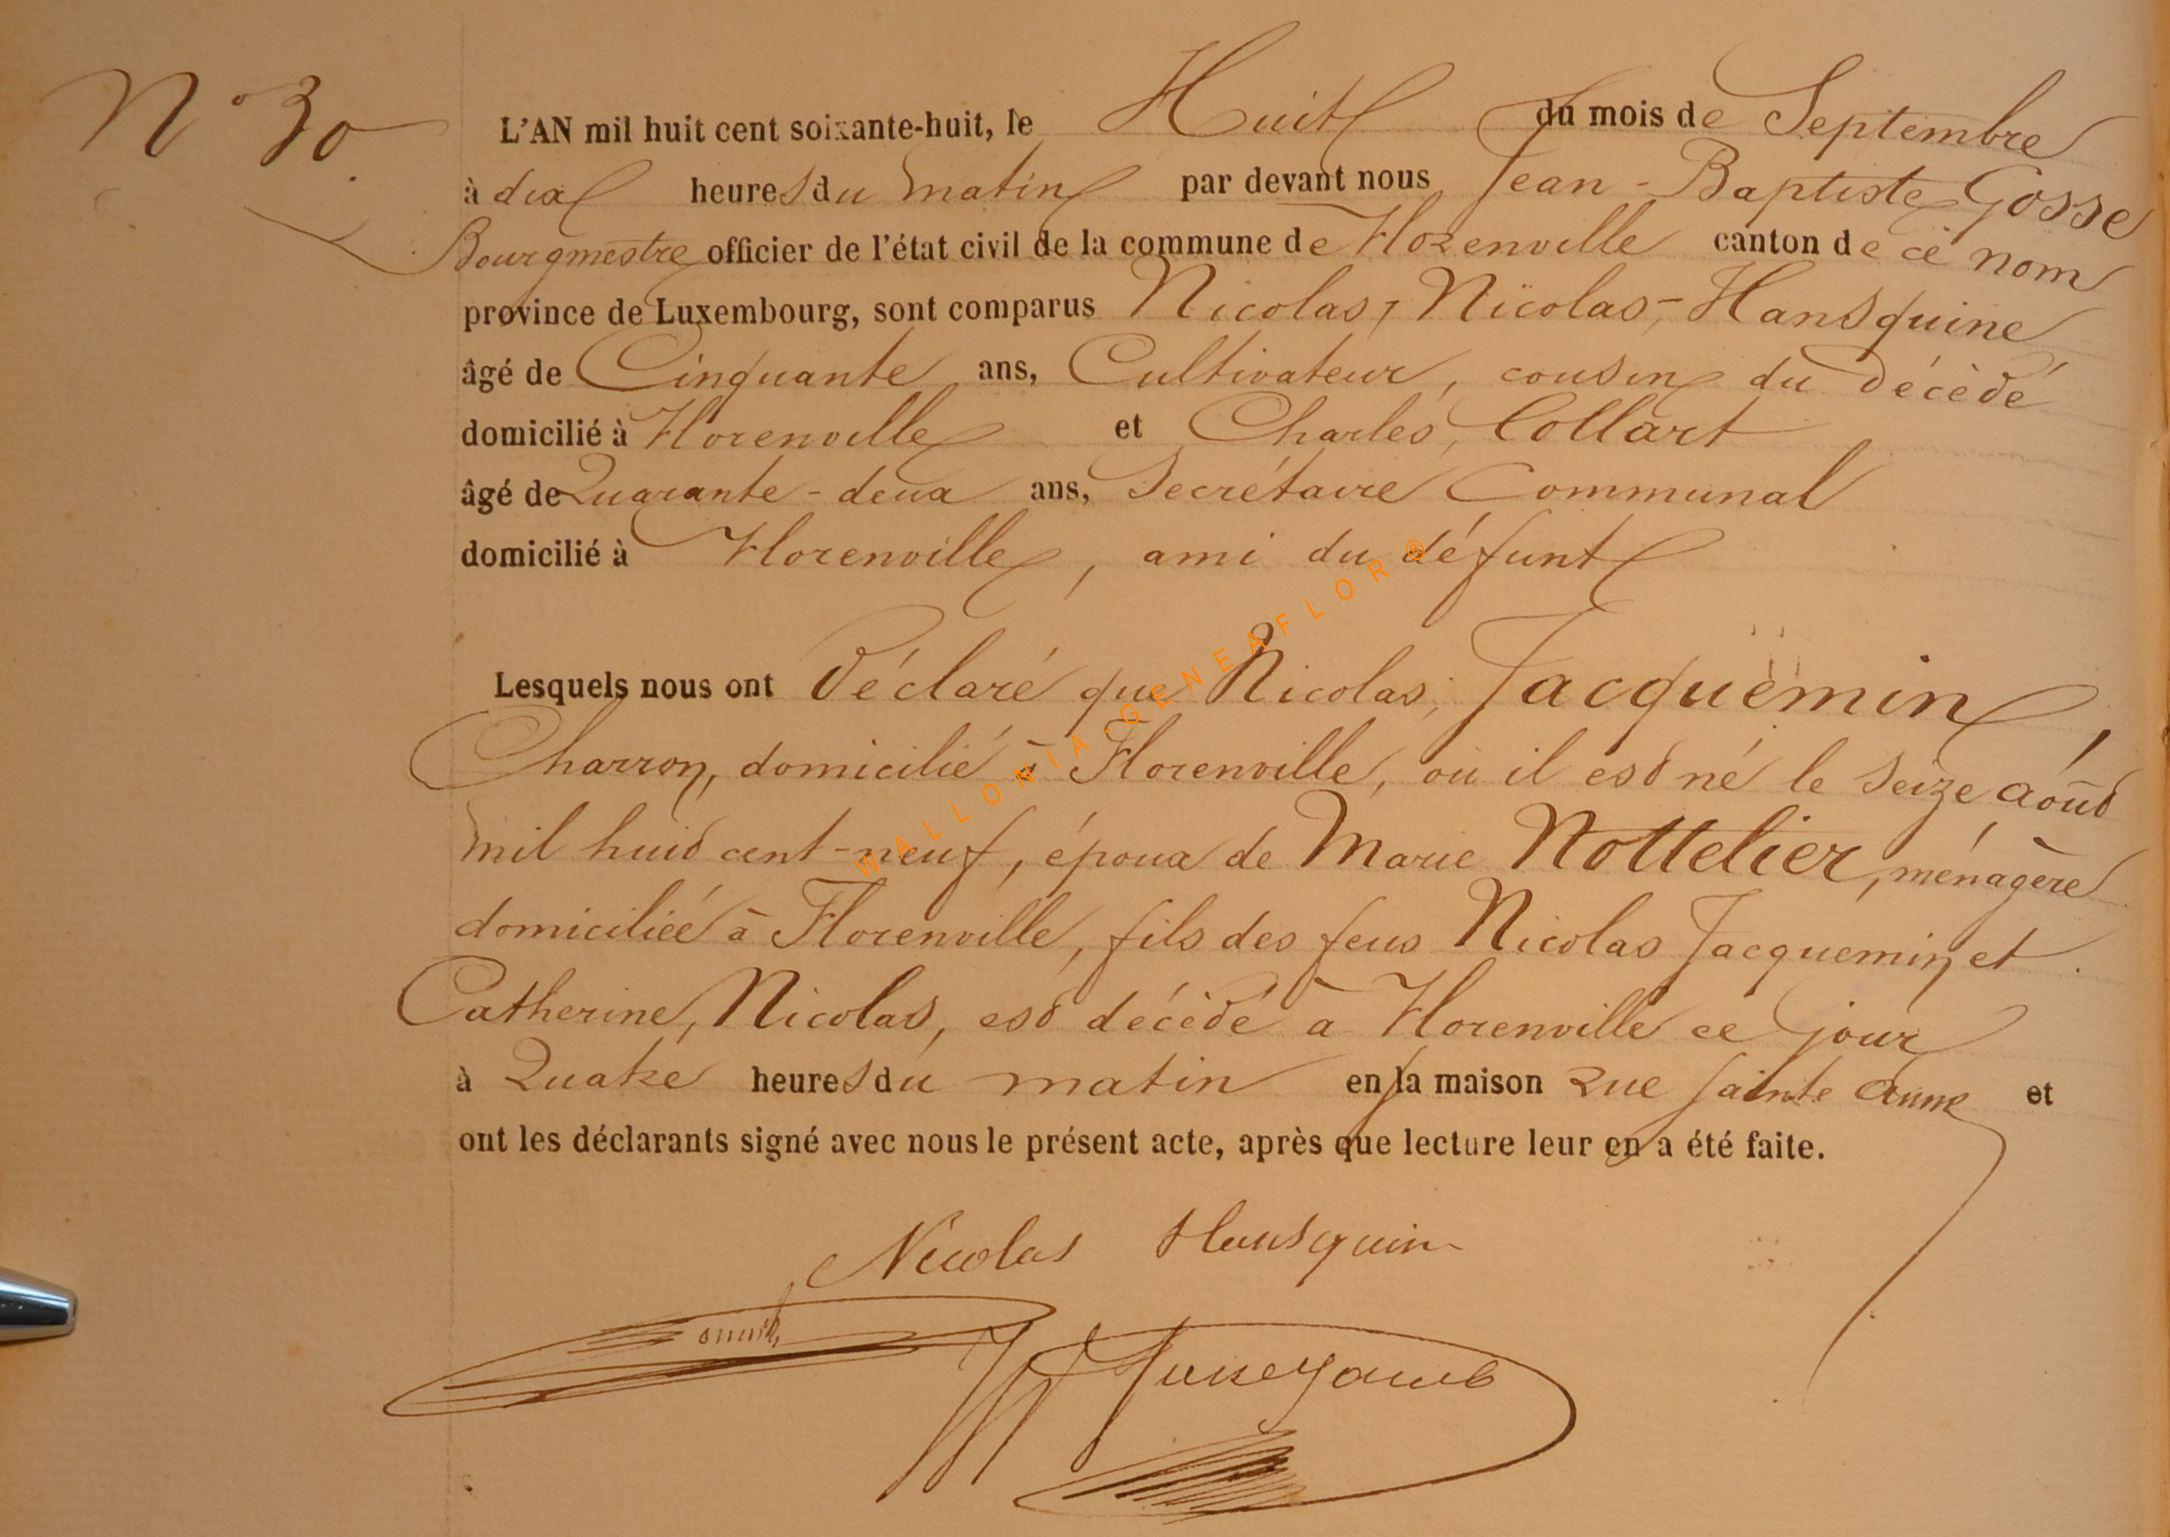 N° 30
L'AN mil huit cent soixante-huit, le Huit du mois de Septembre
à dix heures du matin par devant nous Jean-Baptiste Gosse
Bourgmestre officier de l'état civil de la commune de Florenville canton de ce nom
province de Luxembourg, sont comparus Nicolas, Nicolas-Hansquine
âgé de Cinquante ans, Cultivateur, cousin du décèdé
domicilié à Florenville et Charles, Collart
âgé de Quarante-deux ans, Secrétaire Communal
domicilié à Florenville, ami du défunt
Lesquels nous ont déclaré que Nicolas, Jacquemin,
Charron, domicilié à Florenville, où il est né le seize août
mil huit cent-neuf, époux de Marie Nottelier, ménagère
domiciliée à Florenville, fils des feus Nicolas Jacquemin et
Catherine, Nicolas, est décèdé à Florenville ce jour
à Quatre heures du matin en sa maison rue Sainte Anne et
ont les déclarants signé avec nous le présent acte, après que lecture leur en a été faite.
Nicolas Hansquin
WALLONIA-GENEAFLOR®